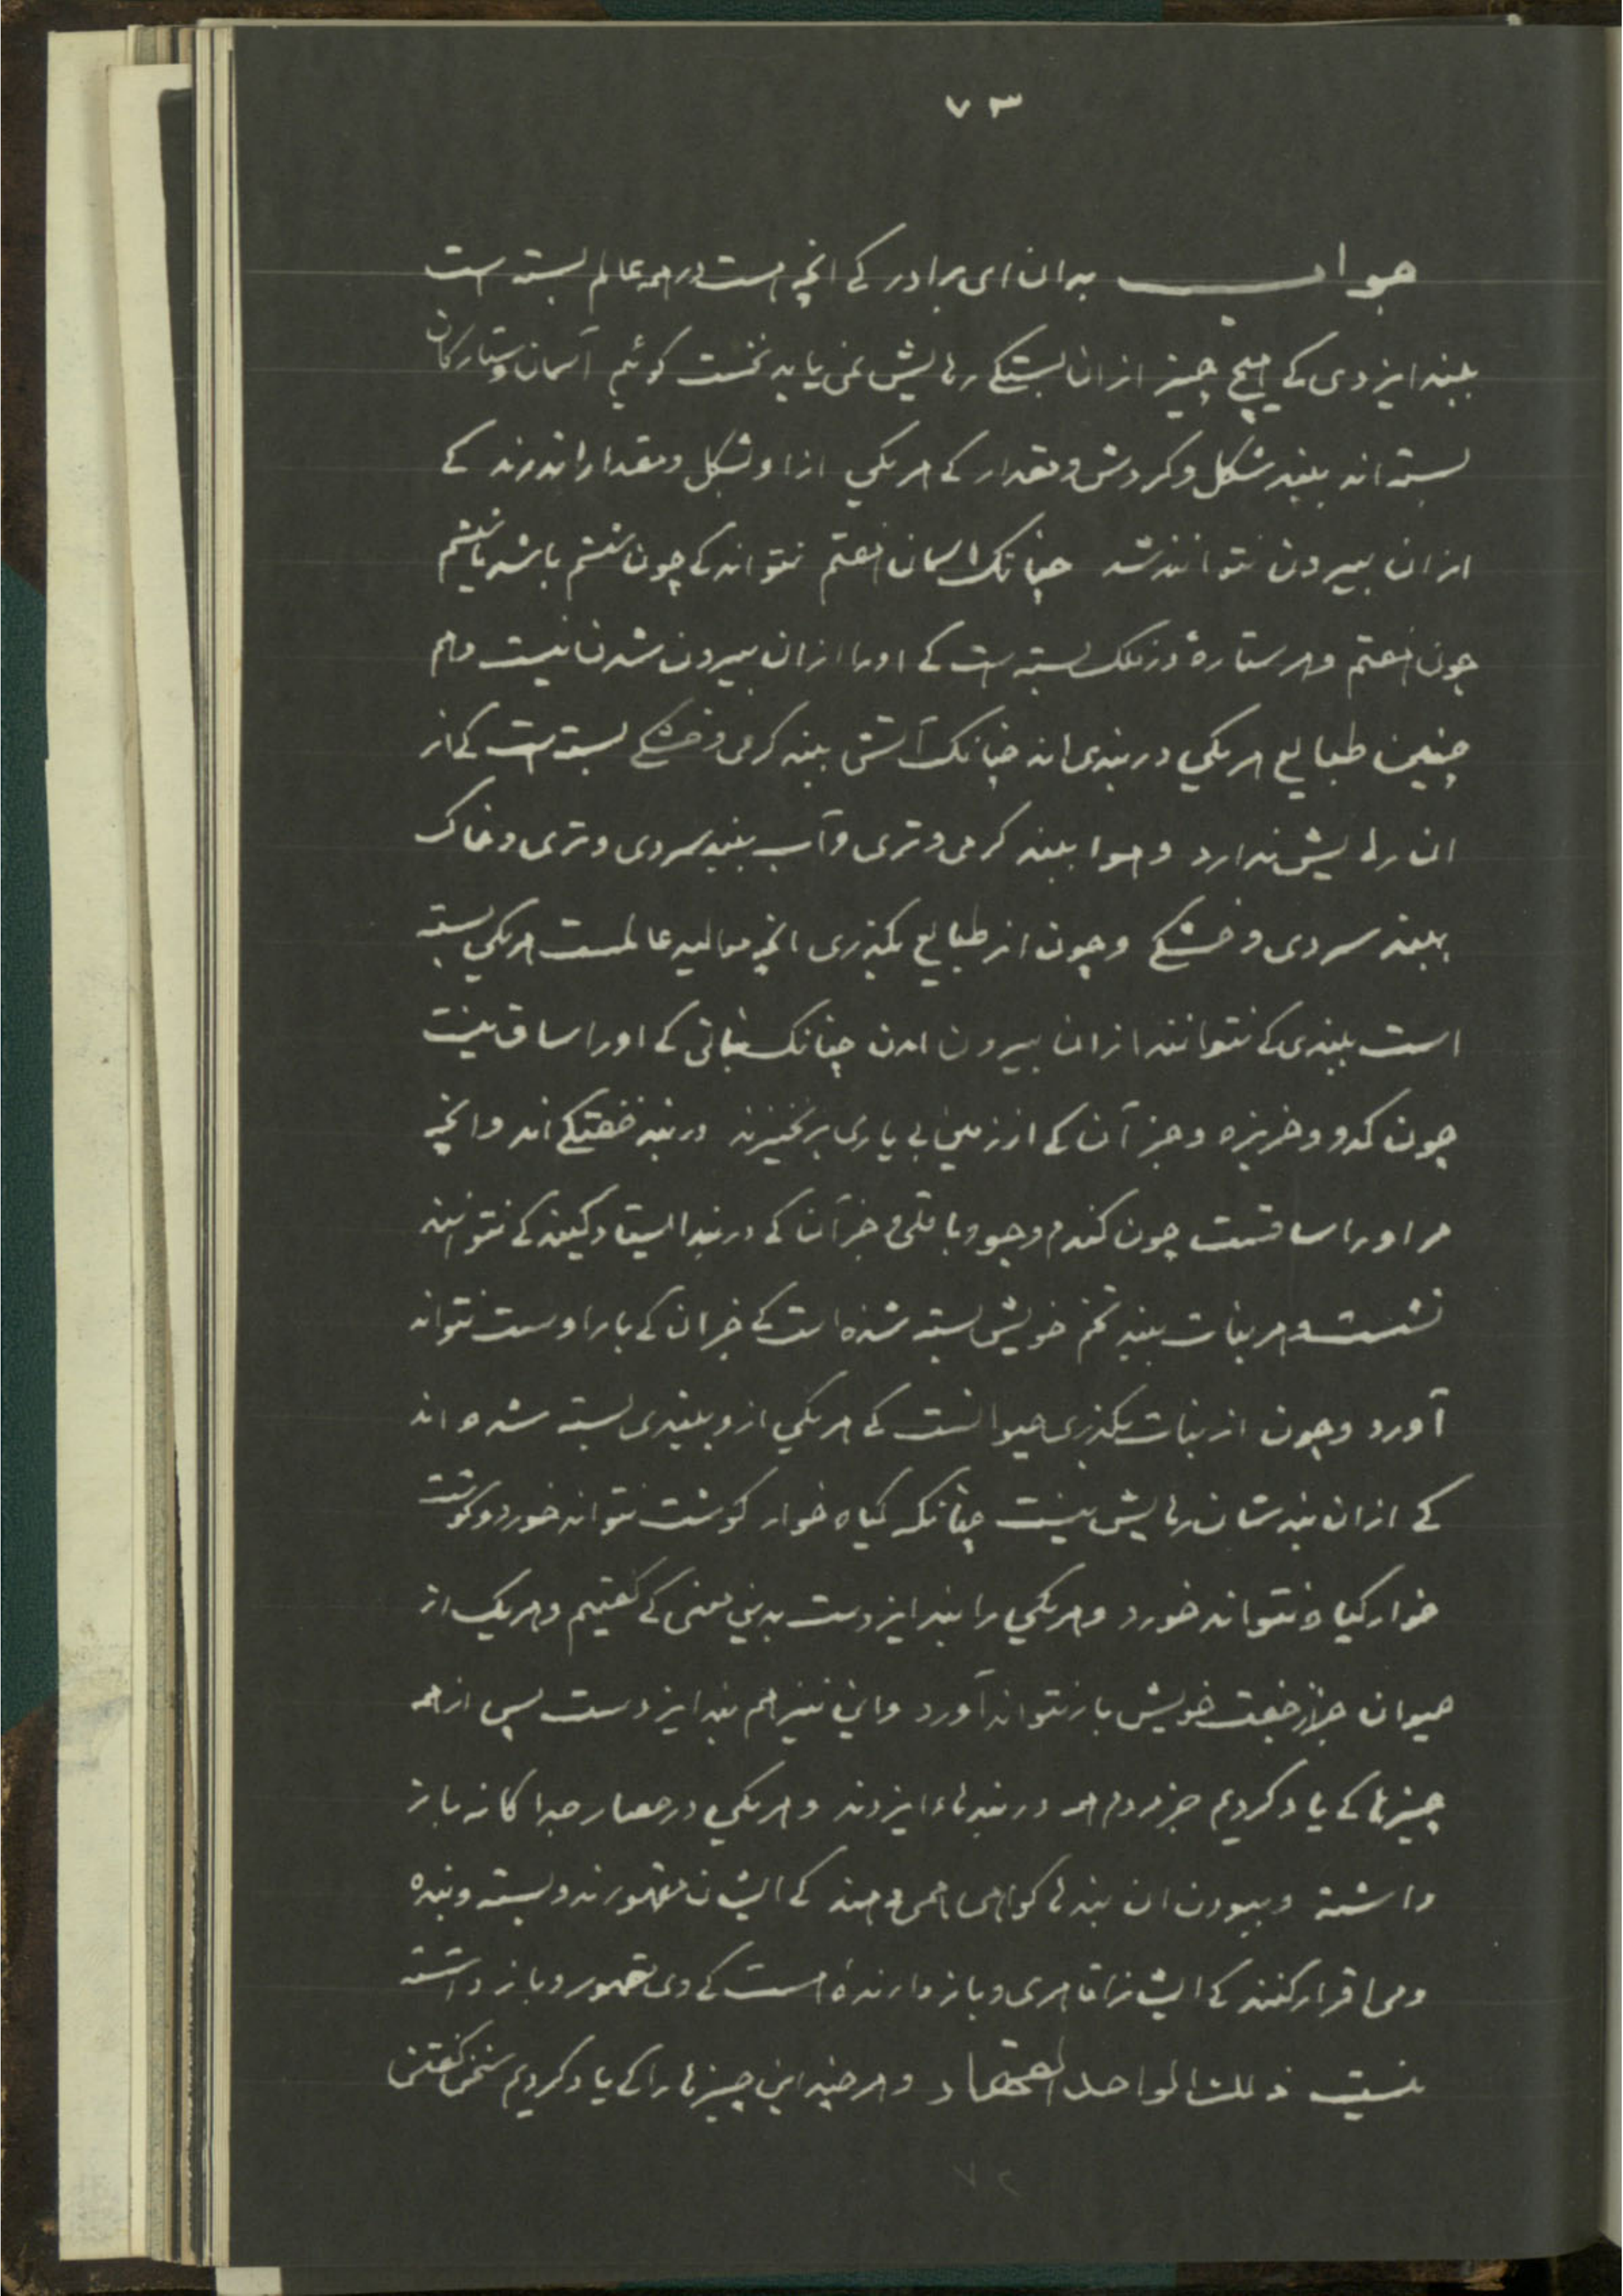 ۷۳
جواب بدان ای برادر کے انچه هست در همه عالم بسته است
ببند ایزدی کے هیچ چیز از ان بستگے رهایش نمی یابد نخست کوئیم آسمان وستارکان
بسته اند ببند شکل وکردش ومقدار کے هر یکی ازا و شکل ومقدار اندرند کے
از ان بیرون نتوانند شد چنانک اسمان هفتم نتواند کے چون ششم باشد یا ششم
چون هفتم وهر ستاره در فلک بسته ست کے اورا از ان بیرون شدن نیست وهم
چنین طبایع هر یکی در بندی اند چنانک آتش ببند کرمی وخشکے بسته ست کے از
ان رهایش ندارد وهوا ببند کرمی وتری وآب ببند سردی وتری وخاک
ببند سردی وخشکے وچون از طبایع بکذری انچه موالید عالمست هر یکی بسته
است ببندی کے نتوانند از ان بیرون امدن چنانک نباتی کے اورا ساق نیست
چون کدو وخربزه وجز آن کے از زمین بی یاری برنخیزند در بند خفتکے اند وانچه
مر اورا ساقست چون کندم وجو وباقلی وجز آن کے در بند ایستادکیند کے نتوانند
نشست وهر نبات ببند تخم خویش بسته شده است کے جز ان کے بار اوست نتواند
آورد وچون از نبات بکذری حیوانست کے هر یکی ازو ببندی بسته شده اند
کے از ان بند شان رهایش نیست چنانکه کیاه خوار کوشت نتواند خورد وکوشت
خوار کیاه نتواند خورد وهر یکی را بند ایزدست بدین معنی کے کفتیم وهر یک از
حیوان جز از جفت خویش باز نتواند آورد واین نیز هم بند ایزدست پس از همه
چیزها کے یاد کردیم جز مردم همه در بندهاء ایزدند وهر یکی در حصار جدا کانه باز
داشته وببودن ان بندها کواهی همی دهند کے ایشان مقهورند وبسته وبنده
ومی اقرار کنند کے ایشانرا قاهری وباز دارندهٔ هست کے وی مقهور وباز داشته
نیست ذلك الواحد القهار وهر چند این چیزها را کے یاد کردیم سخن کفتنی